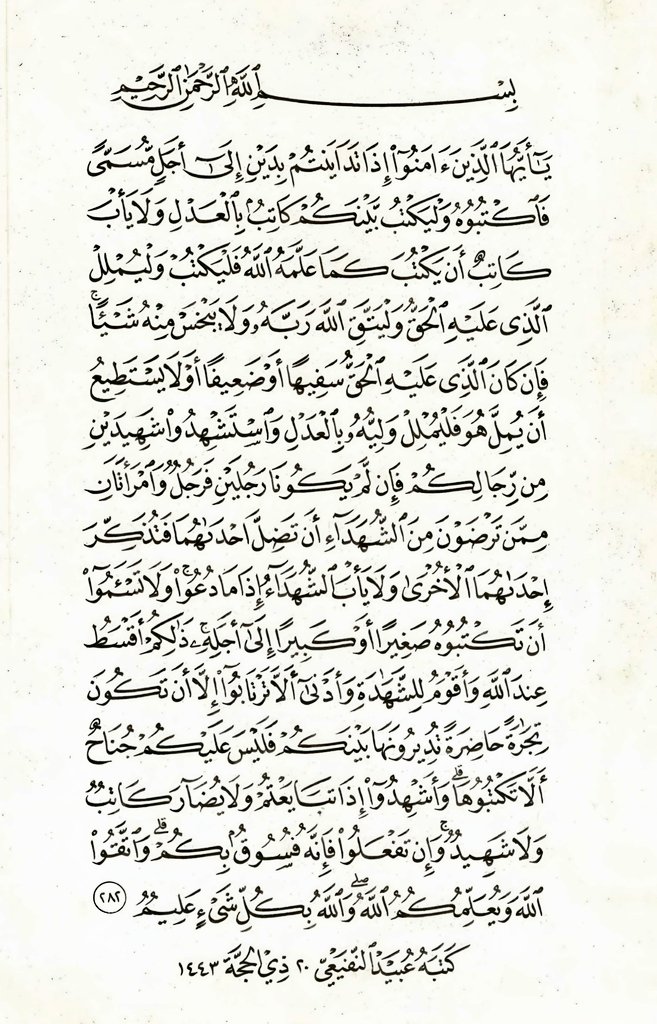 بِسْمِ ٱللَّهِ ٱلرَّحْمَٰنِ ٱلرَّحِيمِ
يَٰٓأَيُّهَا ٱلَّذِينَ ءَامَنُوٓا۟ إِذَا تَدَايَنتُم بِدَيْنٍ إِلَىٰٓ أَجَلٍ مُّسَمًّى
فَٱكْتُبُوهُ وَلْيَكْتُب بَّيْنَكُمْ كَاتِبٌۢ بِٱلْعَدْلِ وَلَا يَأْبَ
كَاتِبٌ أَن يَكْتُبَ كَمَا عَلَّمَهُ ٱللَّهُ فَلْيَكْتُبْ وَلْيُمْلِلِ
ٱلَّذِى عَلَيْهِ ٱلْحَقُّ وَلْيَتَّقِ ٱللَّهَ رَبَّهُۥ وَلَا يَبْخَسْ مِنْهُ شَيْـًٔا ۚ
فَإِن كَانَ ٱلَّذِى عَلَيْهِ ٱلْحَقُّ سَفِيهًا أَوْ ضَعِيفًا أَوْ لَا يَسْتَطِيعُ
أَن يُمِلَّ هُوَ فَلْيُمْلِلْ وَلِيُّهُۥ بِٱلْعَدْلِ وَٱسْتَشْهِدُوا۟ شَهِيدَيْنِ
مِن رِّجَالِكُمْ فَإِن لَّمْ يَكُونَا رَجُلَيْنِ فَرَجُلٌ وَٱمْرَأَتَانِ
مِمَّن تَرْضَوْنَ مِنَ ٱلشُّهَدَآءِ أَن تَضِلَّ إِحْدَىٰهُمَا فَتُذَكِّرَ
إِحْدَىٰهُمَا ٱلْأُخْرَىٰ وَلَا يَأْبَ ٱلشُّهَدَآءُ إِذَا مَا دُعُوا۟ ۚ وَلَا تَسْـَٔمُوٓا۟
أَن تَكْتُبُوهُ صَغِيرًا أَوْ كَبِيرًا إِلَىٰٓ أَجَلِهِۦ ۚ ذَٰلِكُمْ أَقْسَطُ
عِندَ ٱللَّهِ وَأَقْوَمُ لِلشَّهَٰدَةِ وَأَدْنَىٰٓ أَلَّا تَرْتَابُوٓا۟ إِلَّآ أَن تَكُونَ
تِجَٰرَةً حَاضِرَةً تُدِيرُونَهَا بَيْنَكُمْ فَلَيْسَ عَلَيْكُمْ جُنَاحٌ
أَلَّا تَكْتُبُوهَا ۗ وَأَشْهِدُوٓا۟ إِذَا تَبَايَعْتُمْ وَلَا يُضَآرَّ كَاتِبٌ
وَلَا شَهِيدٌ ۚ وَإِن تَفْعَلُوا۟ فَإِنَّهُۥ فُسُوقٌۢ بِكُمْ ۗ وَٱتَّقُوا۟
ٱللَّهَ وَيُعَلِّمُكُمُ ٱللَّهُ ۖ وَٱللَّهُ بِكُلِّ شَىْءٍ عَلِيمٌ ٢٨٢
كَتَبَهُ عُبَيْد النفيعي ٢٠ ذِي الحِجَّة ١٤٤٣